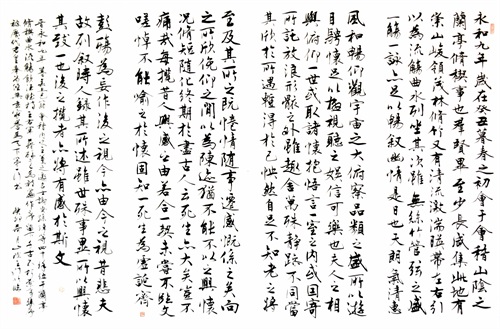 永和九年歲在癸丑暮春之初會于會稽山陰之
蘭亭脩稧事也羣賢畢至少長咸集此地有
崇山峻領茂林脩竹又有清流激湍暎帶左右引
以為流觴曲水列坐其次雖無絲竹管弦之盛
一觴一詠亦足以暢敘幽情是日也天朗氣清惠
風和暢仰觀宇宙之大俯察品類之盛所以遊
目騁懷足以極視聽之娛信可樂也夫人之相
與俯仰一世或取諸懷抱悟言一室之內或因寄
所託放浪形骸之外雖趣舍萬殊靜躁不同當
其欣於所遇蹔得於己怏然自足不知老之將
至及其所之既惓情隨事遷感慨係之矣向
之所欣俛仰之間以為陳迹猶不能不以之興懷
況脩短隨化終期於盡古人云死生亦大矣豈不
痛哉每攬昔人興感之由若合一契未嘗不臨文
嗟悼不能喻之於懷固知一死生為虛誕齊
彭殤為妄作後之視今亦由今之視昔悲夫
故列敘時人錄其所述雖世殊事異所以興懷
其致一也後之攬者亦將有感於斯文